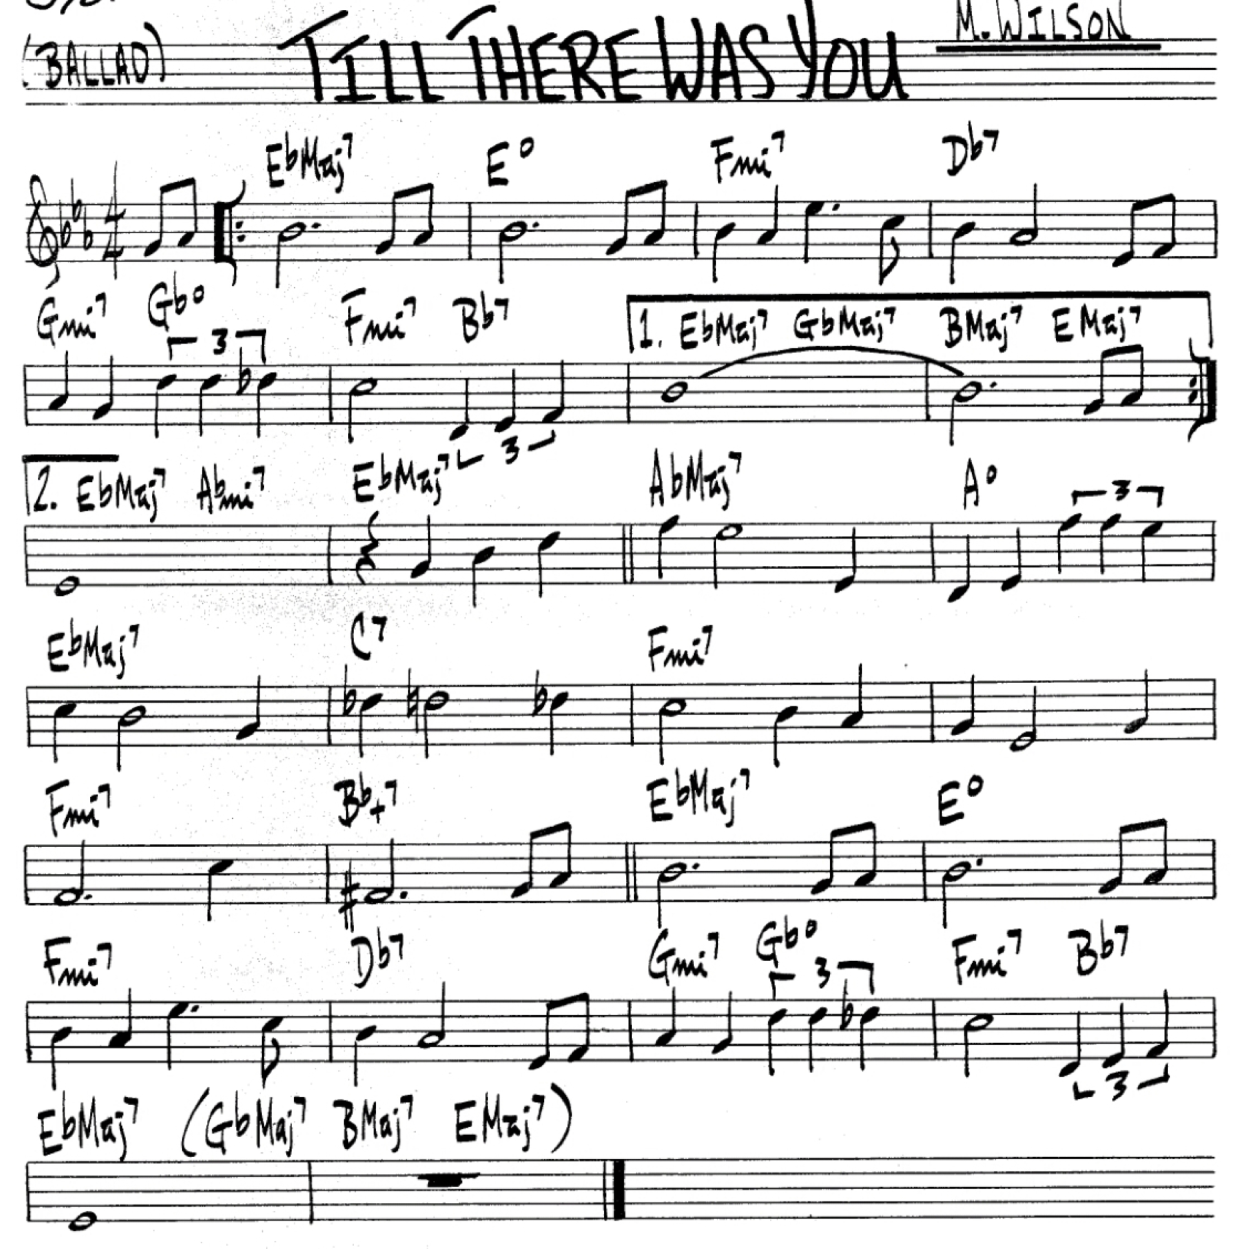 (BALLAD) TILL THERE WAS YOU M. WILSON
EbMaj7 Eo Fmi7 Db7
4/4
Gmi7 Gbo Fmi7 Bb7 1. EbMaj7 GbMaj7 BMaj7 EMaj7
3
3
2. EbMaj7 Abmi7 EbMaj7 AbMaj7 Ao
3
EbMaj7 C7 Fmi7
Fmi7 Bb+7 EbMaj7 Eo
Fmi7 Db7 Gmi7 Gbo Fmi7 Bb7
3
3
EbMaj7 (GbMaj7 BMaj7 EMaj7)